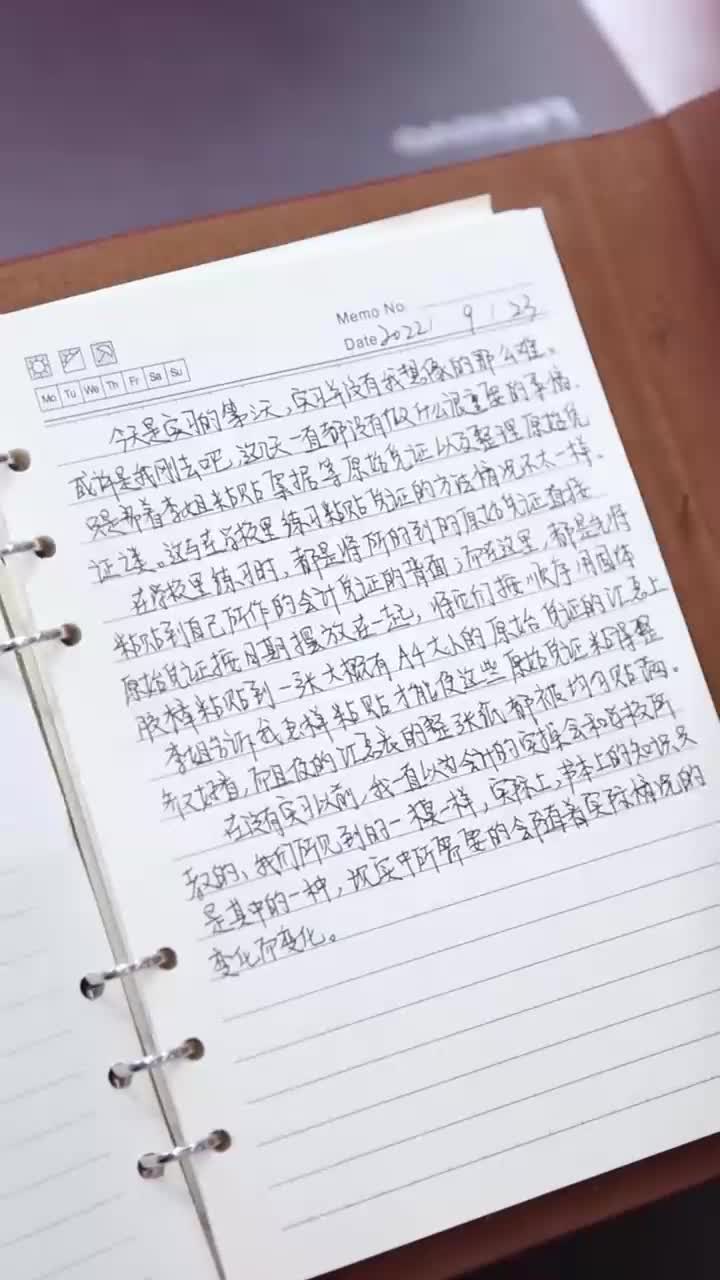 Lenovo
Memo No.
Date 2022 / 9 / 23
Mo Tu We Th Fr Sa Su
今天是实习的第三天，实习并没有我想像的那么难。
或许是我刚去吧，这几天一直都没有做什么很重要的事情。
只是帮着李姐粘贴票据等原始凭证以及整理原始凭
证类。这与在学校里练习粘贴凭证的方法情况不太一样。
在学校里练习时，都是将所的到的原始凭证直接
粘贴到自己所作的会计凭证的背面；而在这里，都是先将
原始凭证按日期摆放在一起，将它们按顺序用固体
胶棒粘贴到一张大概有A4大小的原始凭证的汇总上
李姐告诉我怎样粘贴才能使这些原始凭证粘得整
齐又好看，而且使的汇总表的整张纸都被均匀贴满。
在没有实习以前，我一直以为会计的实操会和学校所
教的、我们所见到的一模一样，实际上，书本上的知识只
是其中的一种，现实中所需要的会随着实际情况的
变化而变化。